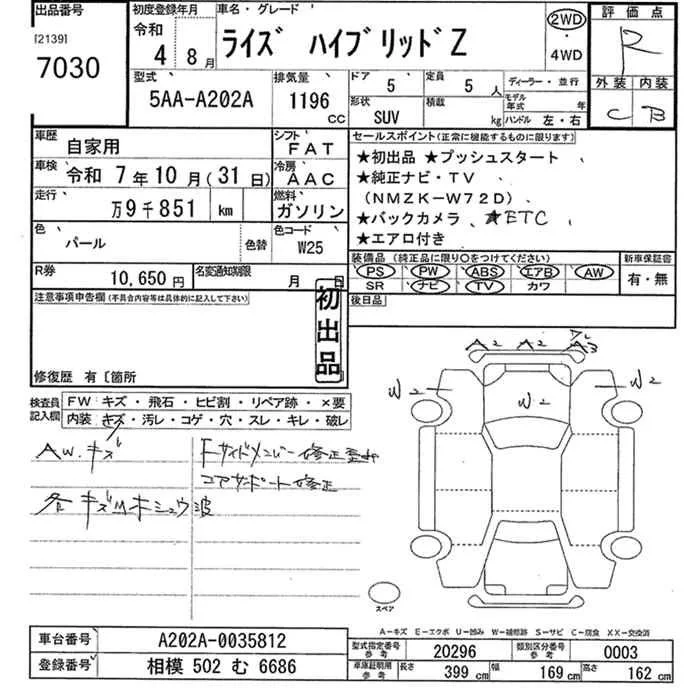 出品番号 初度登録年月 車名・グレード 2WD 評価点
[2139] 令和 ライズ ハイブリッドZ ・ R
7030 4 8月 4WD
型式 排気量 ドア 5 定員 5人 ディーラー・並行 外装 内装
5AA-A202A 1196 CC 形状 SUV 積載 kg モデル年式 年 C B
ハンドル 左・右
車歴 自家用 シフト FAT セールスポイント(正常に機能するものに限ります)
車検 令和 7年10月(31日) 冷房 AAC ★初出品 ★プッシュスタート
走行 万9千851 km 燃料 ガソリン ★純正ナビ・TV
(NMZK-W72D)
色 パール 色替 色コード W25 ★バックカメラ ★ETC
★エアロ付き
R券 10,650円 名変通知期限 月 日 装備品(純正品に限り○をつけてください) 新車保証書
PS PW ABS エアB AW 有・無
SR ナビ TV カワ
注意事項申告欄(不具合内容等は具体的に記入して下さい) 初出品 後日品
修復歴 有〔箇所
検査員記入欄 FW キズ・飛石・ヒビ割・リペア跡・×要
内装 キズ・汚レ・コゲ・穴・スレ・キレ・破レ
A2 A2 A3
W2 W2 W2
AW.キズ Fサイドメンバー修正
コアサポート修正
各キズ 波
スペア
A-キズ E-エクボ U-凹み W-補修跡 S-サビ C-腐食 XX-交換済
車台番号 A202A-0035812 型式指定番号 参考 20296 類別区分番号 参考 0003
登録番号 相模 502 む 6686 車庫証明用 参考 長さ 399 cm 幅 169 cm 高さ 162 cm